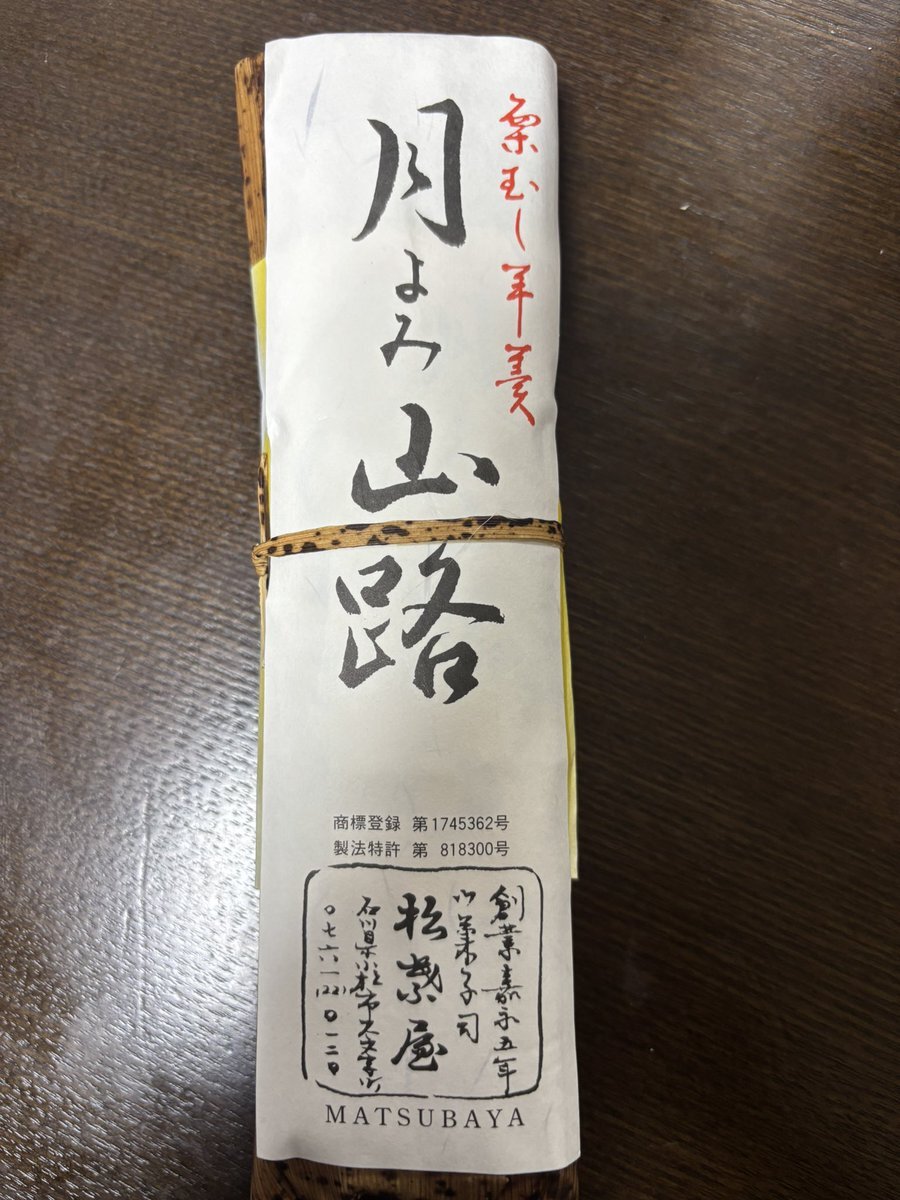 栗むし羊羹
月よみ山路
商標登録 第1745362号
製法特許 第 818300号
創業嘉永五年
御菓子司
松葉屋
石川県小松市大文字町
〇七六一(22)〇一二〇
MATSUBAYA